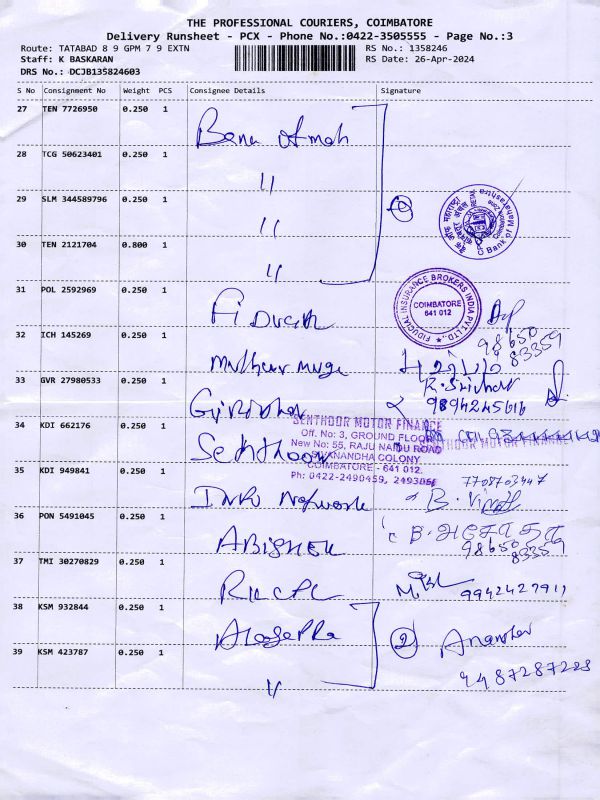 THE PROFESSIONAL COURIERS, COIMBATORE
Delivery Runsheet - PCX - Phone No.:0422-3505555 - Page No.:3
Route: TATABAD 8 9 GPM 7 9 EXTN RS No.: 1358246
Staff: K BASKARAN RS Date: 26-Apr-2024
DRS No.: DCJB135824603
S No Consignment No Weight PCS Consignee Details Signature
27 TEN 7726950 0.250 1
28 TCG 50623401 0.250 1 "
29 SLM 344589796 0.250 1 "
30 TEN 2121704 0.800 1 "
Bank of Maharashtra
FIDUCIAL INSURANCE BROKERS INDIA PVT. LTD.
COIMBATORE
641 012
31 POL 2592969 0.250 1
98650
83359
32 ICH 145269 0.250 1
33 GVR 27980533 0.250 1 K. Sridhar
9894245616
34 KDI 662176 0.250 1 Senthoor
SENTHOOR MOTOR FINANCE
Off. No: 3, GROUND FLOOR
New No: 55, RAJU NAIDU ROAD
SIVANANDHA COLONY
COIMBATORE - 641 012.
Ph: 0422-2490459,
SENTHOOR MOTOR FINANCE
35 KDI 949841 0.250 1 Network
7708703447
36 PON 5491045 0.250 1 ABISHEK
98650
83359
37 TMI 30270829 0.250 1 9942427911
38 KSM 932844 0.250 1 2
39 KSM 423787 0.250 1 " 9487287228